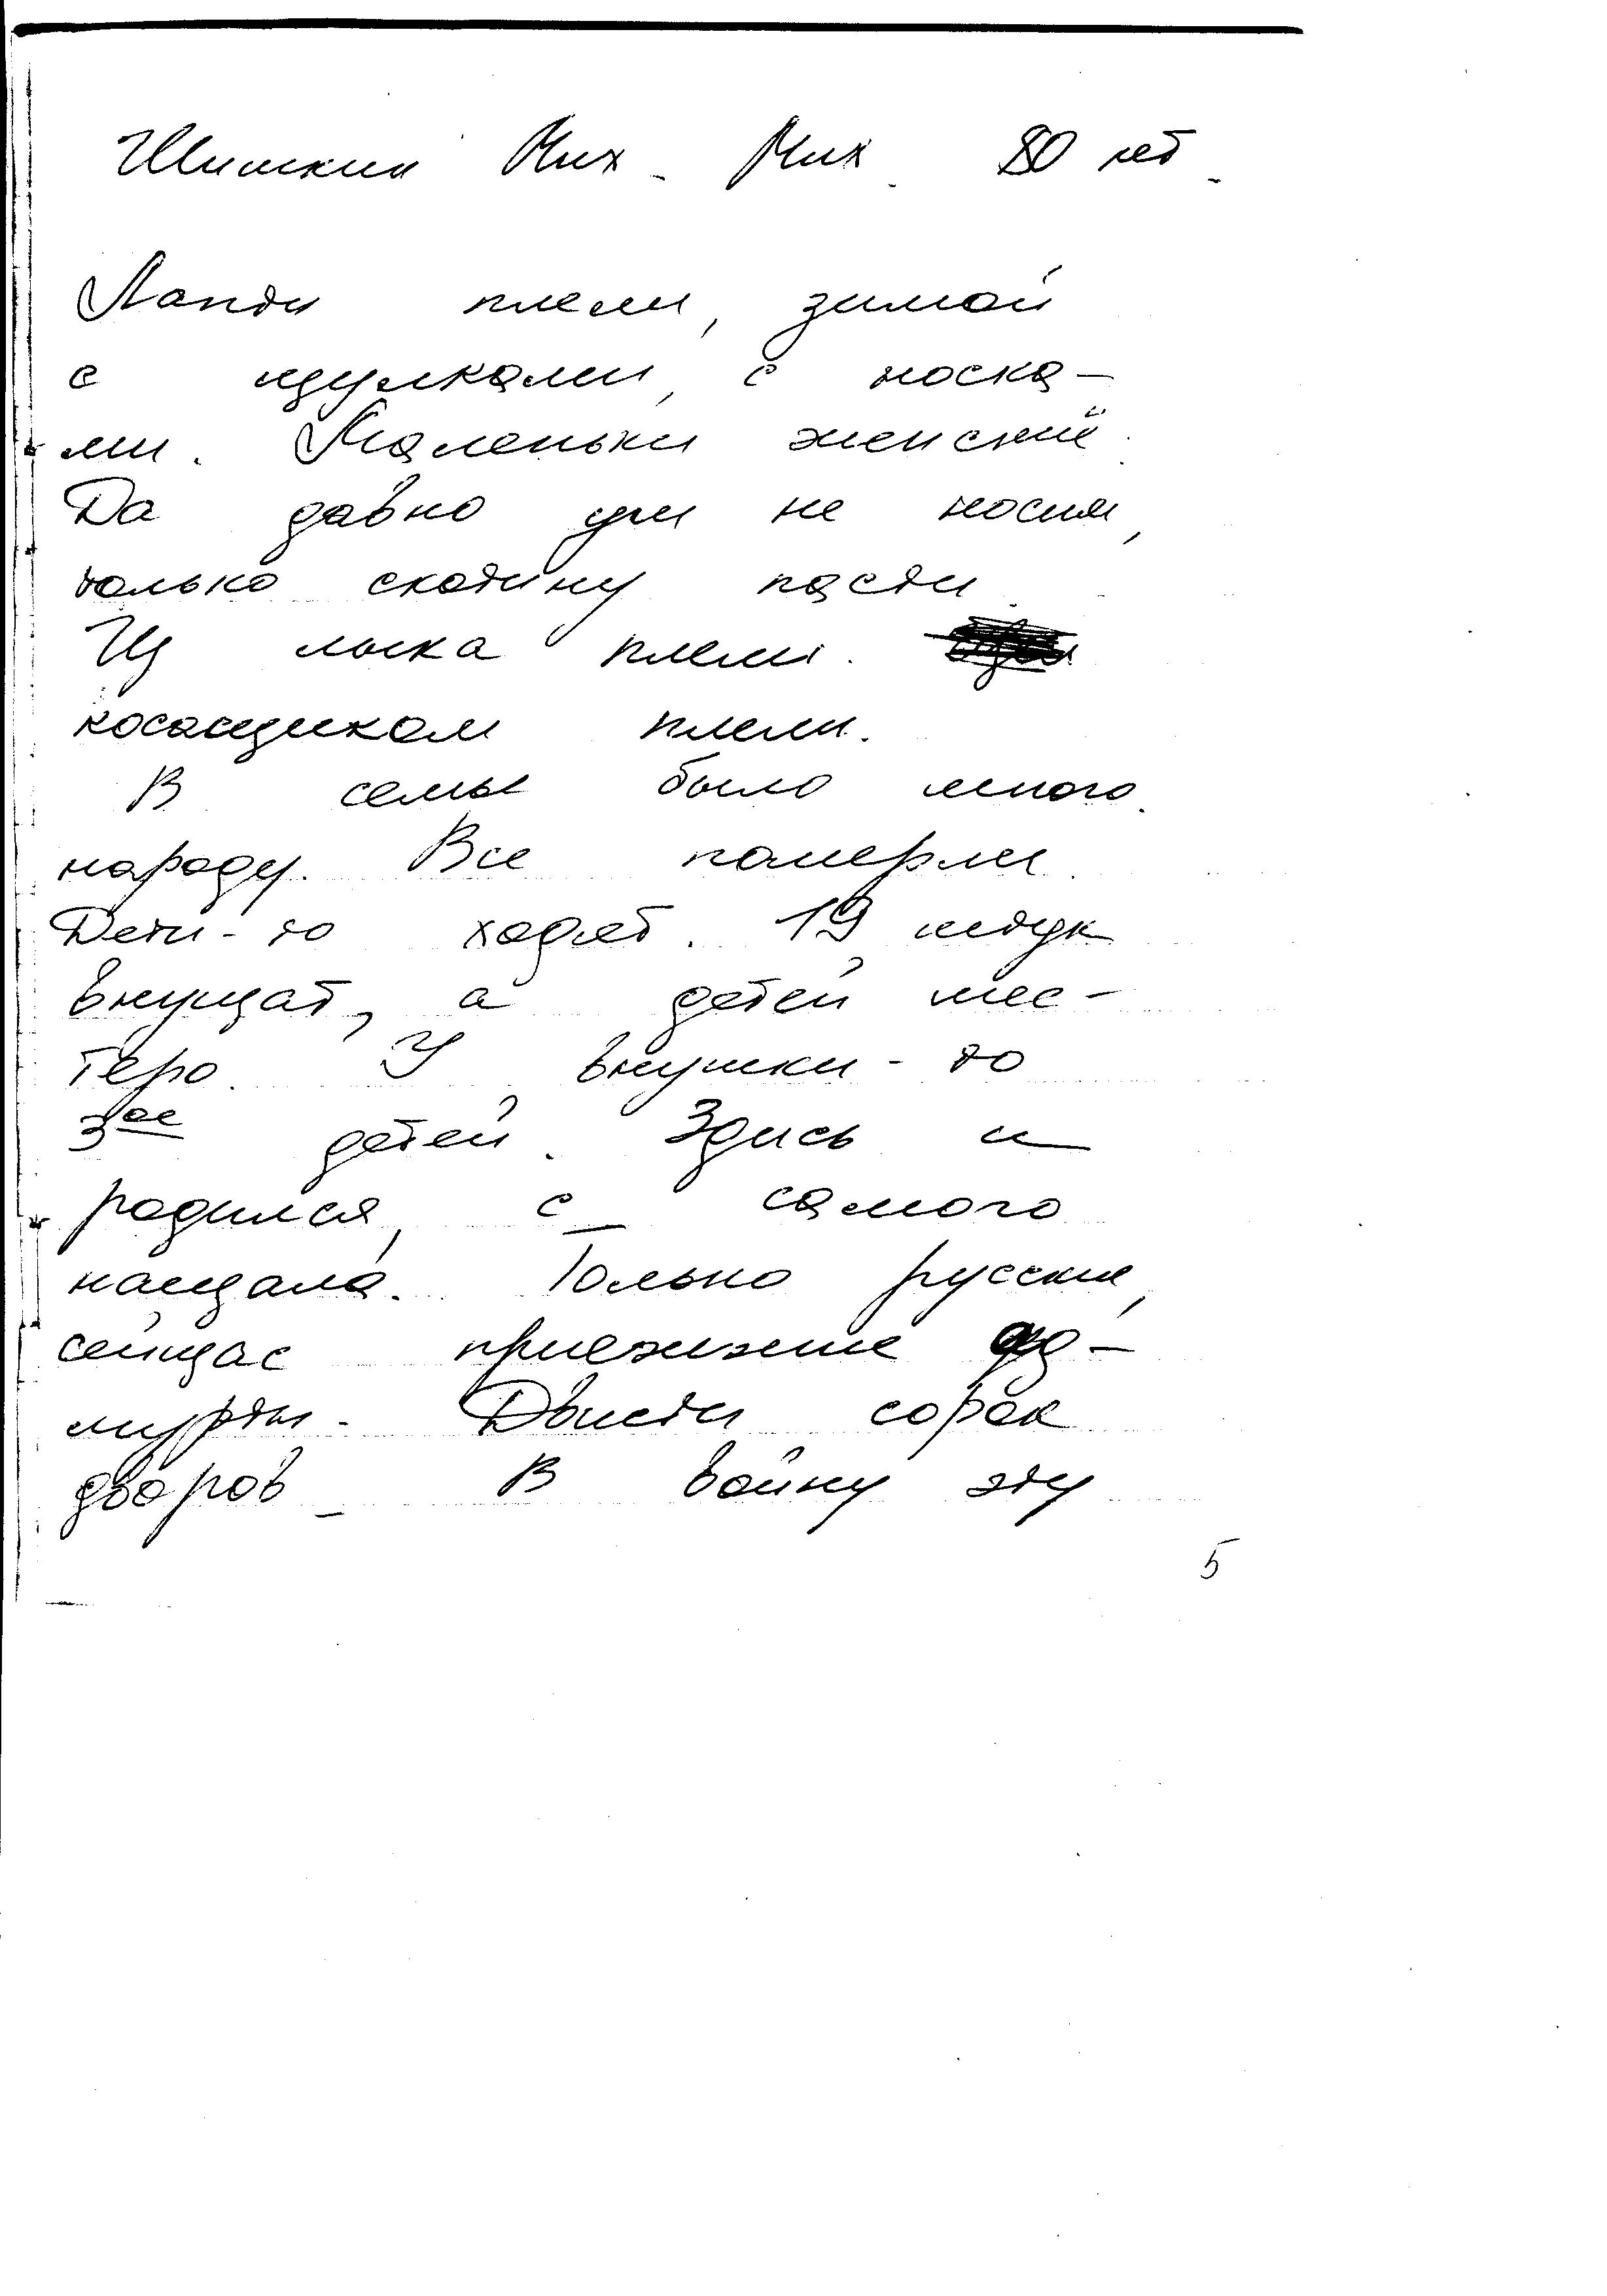 Шишкин Мих. Мих. 80 лет.
Лапти плели, зимой
с щулками, с носка-
ми. Маленьки женские.
Да давно уж не носим,
только скотину пасти.
Из лыка плели.
косащиком плели.
В семье было много
народу. Все померли.
Дети-то ходят. 19 штук
внущат, а детей шес-
теро. У внушки-то
3ое детей. Здись и
родился, с самого
нащала. Только русские,
сейщас приезжие уд-
мурты. Двисти сорак
дворов. В войну эту
5